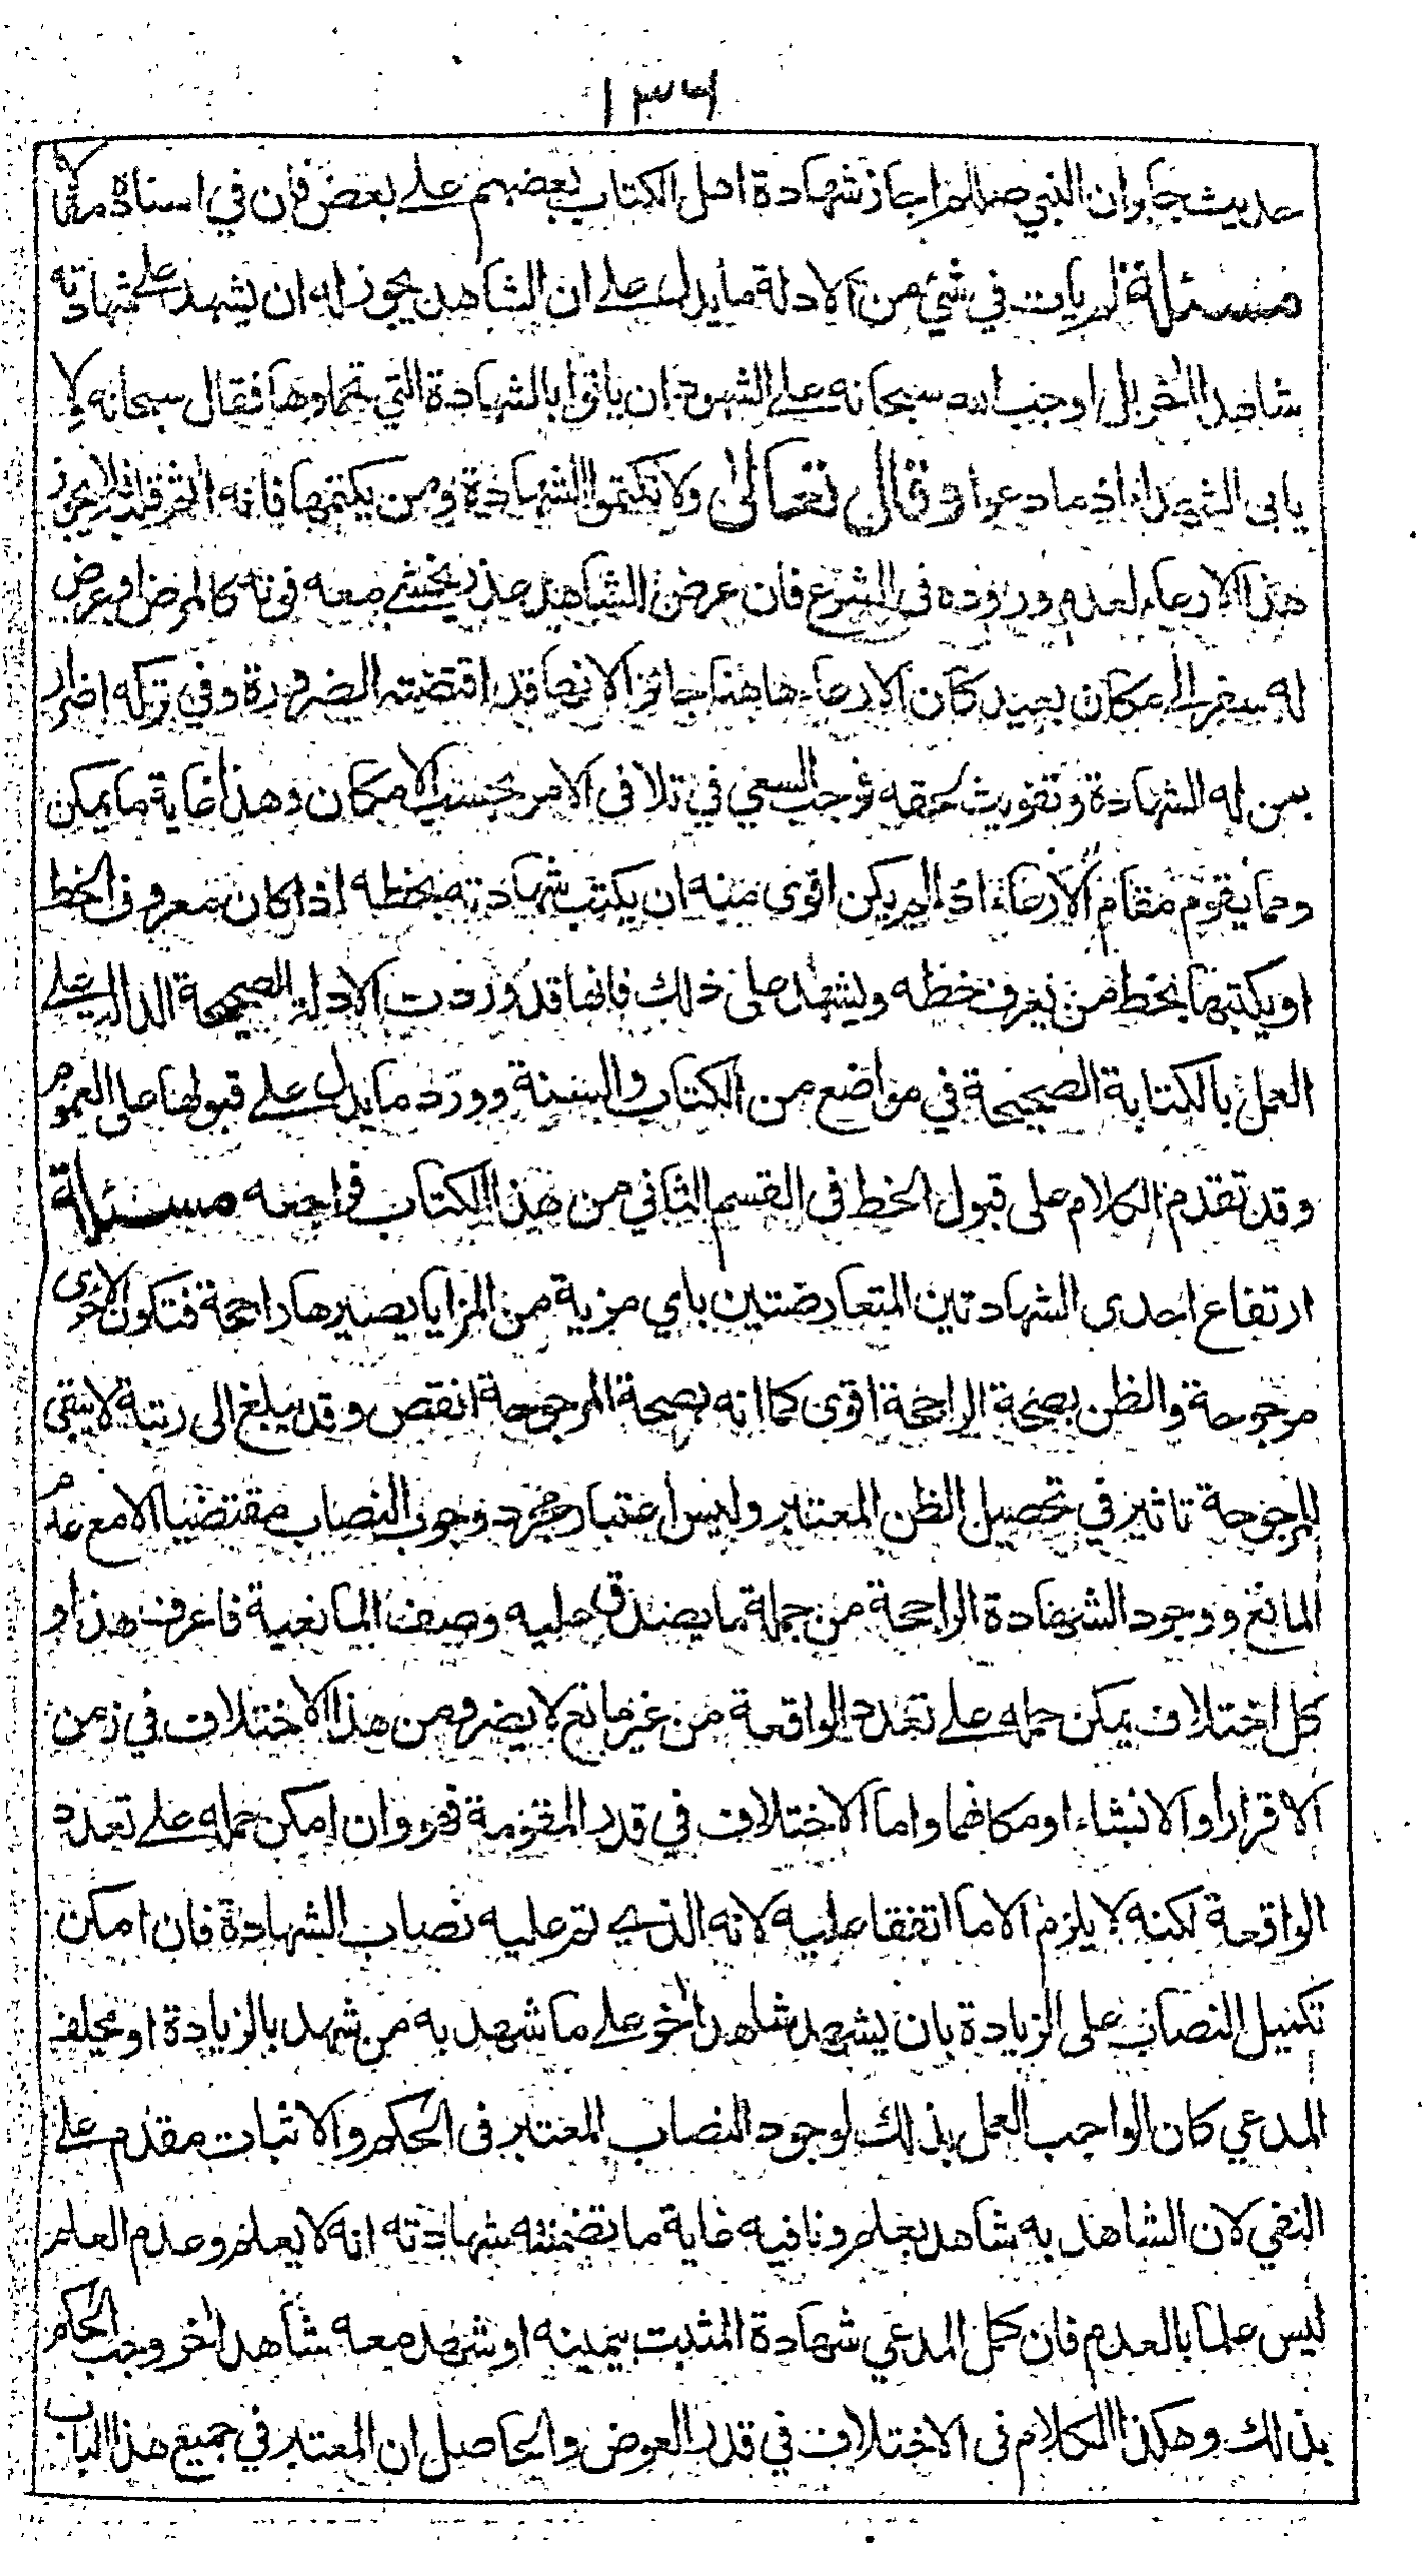 ١٣٦
حديث جابر ان النبي صللم اجاز شهادة اهل الكتاب بعضهم على بعض فان في اسناده مقالا
مسئلة لم يات في شئ من الادلة ما يدل على ان الشاهد يجوز له ان يشهد على شهادته
شاهدا اخر بل اوجب الله سبحانه على الشهود ان ياتوا بالشهادة التي تحملوها فقال سبحانه ولا
يابى الشهداء اذا ما دعوا وقال تعالى ولا تكتموا الشهادة ومن يكتمها فانه اثم قلبه فلا يجوز
هذا الارعاء لعدم وروده فى الشرع فان عرض للشاهد عذر يخشى معه فوته كالمرض او عرض
له سفر الى مكان بعيد كان الارعاء هاهنا جائزا لانها قد اقتضته الضرورة وفي تركه اضرار
بمن له الشهادة وتفويت لحقه فوجب السعي في تلافى الامر بحسب الامكان وهذا غاية ما يمكن
ومما يقوم مقام الارعاء اذا لم يكن اقوى منه ان يكتب شهادته بخطه اذا كان معروف الخط
او يكتبها بخط من يعرف خطه ويشهد على ذلك فانها قد وردت الادلة الصحيحة الدالة على
العمل بالكتابة الصحيحة في مواضع من الكتاب والسنة وورد ما يدل على قبولها على العموم
وقد تقدم الكلام على قبول الخط فى القسم الثاني من هذا الكتاب فراجعه مسئلة
ارتفاع احدى الشهادتين المتعارضتين باي مزية من المزايا يصيرها راجحة فتكون الاخرى
مرجوحة والظن بصحة الراجحة اقوى كما انه بصحة المرجوحة انقص وقد يبلغ الى رتبة لا يبقى
للمرجوحة تاثير في تحصيل الظن المعتبر وليس اعتبار مجرد وجود النصاب مقتضيا الا مع عدم
المانع ووجود الشهادة الراجحة من جملة ما يصدق عليه وصف المانعية فاعرف هذا و
كل اختلاف يمكن حمله على تعدد الواقعة من غير مانع لا يضر ومن هذا الاختلاف في زمن
الاقرار او الانشاء او مكانهما واما الاختلاف في قدر المقر به فهو وان امكن حمله على تعدد
الواقعة لكنه لا يلزم الا ما اتفقا عليه لانه الذي تم عليه نصاب الشهادة فان امكن
تكميل النصاب على الزيادة بان يشهد شاهد اخر على ما شهد به من شهد بالزيادة او يحلف
المدعي كان الواجب العمل بذلك لوجود النصاب المعتبر فى الحكم والاثبات مقدم على
النفي لان الشاهد به شاهد بعلم ونافيه غاية ما تضمنته شهادته انه لا يعلم وعدم العلم
ليس علما بالعدم فان كمل المدعي شهادة المثبت بيمينه او شهد معه شاهد اخر وجب الحكم
بذلك وهكذا الكلام فى الاختلاف في قدر العوض والحاصل ان المعتبر في جميع هذا الباب